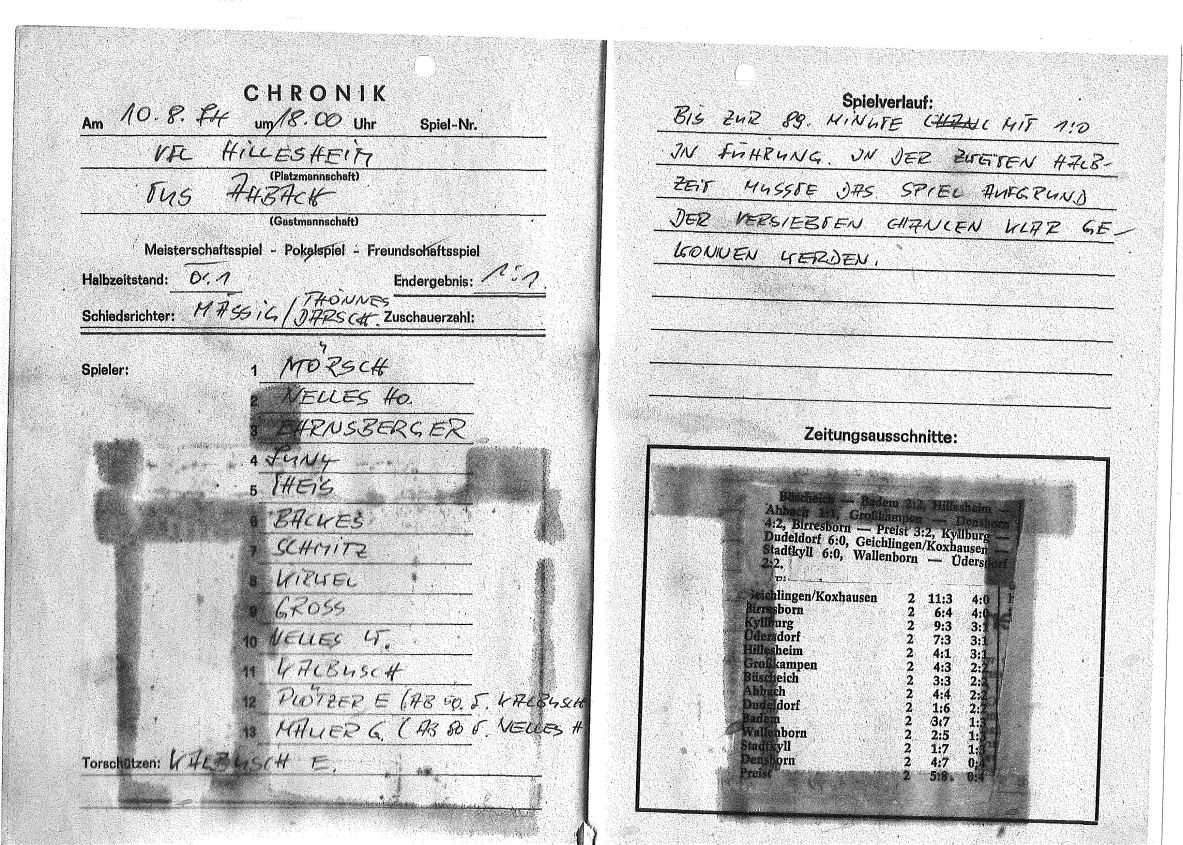 CHRONIK
Am 10.8.74 um 18.00 Uhr Spiel-Nr.
VFL HILLESHEIM
(Platzmannschaft)
TUS AHBACH
(Gastmannschaft)
Meisterschaftsspiel - Pokalspiel - Freundschaftsspiel
Halbzeitstand: 0:1 Endergebnis: 1:1
Schiedsrichter: MÄSSIG/THÖNNES Zuschauerzahl:
Spieler: 1 MÖRSCH
2 NELLES HO.
3 EHRNSBERGER
4 JUNY
5 THEIS
6 BACKES
7 SCHMITZ
8 KIRWEL
9 GROSS
10 NELLES W.
11 KALBUSCH
12 PLÖTZER E (AB 40. F. KALBUSCH
13 MAUER G. (AB 80 F. NELLES H
Torschützen: KALBUSCH E.
Spielverlauf:
BIS ZUR 89. MINUTE MIT 1:0
IN FÜHRUNG. IN DER ZWEITEN HALB-
ZEIT MUSSTE DAS SPIEL AUFGRUND
DER VERSIEBTEN CHANCEN KLAR GE-
WONNEN WERDEN.
Zeitungsausschnitte:
Büscheich — Badem 2:2, Hillesheim —
Ahbach 1:1, Großkampen — Densborn
4:2, Birresborn — Preist 3:2, Kyllburg —
Dudeldorf 6:0, Geichlingen/Koxhausen —
Stadtkyll 6:0, Wallenborn — Üdersdorf
2:2.
Geichlingen/Koxhausen 2 11:3 4:0
Birresborn 2 6:4 4:0
Kyllburg 2 9:3 3:1
Üdersdorf 2 7:3 3:1
Hillesheim 2 4:1 3:1
Großkampen 2 4:3 2:2
Büscheich 2 3:3 2:2
Ahbach 2 4:4 2:2
Dudeldorf 2 1:6 2:2
Badem 2 3:7 1:3
Wallenborn 2 2:5 1:3
Stadtkyll 2 1:7 1:3
Densborn 2 4:7 0:4
Preist 2 5:8 0:4